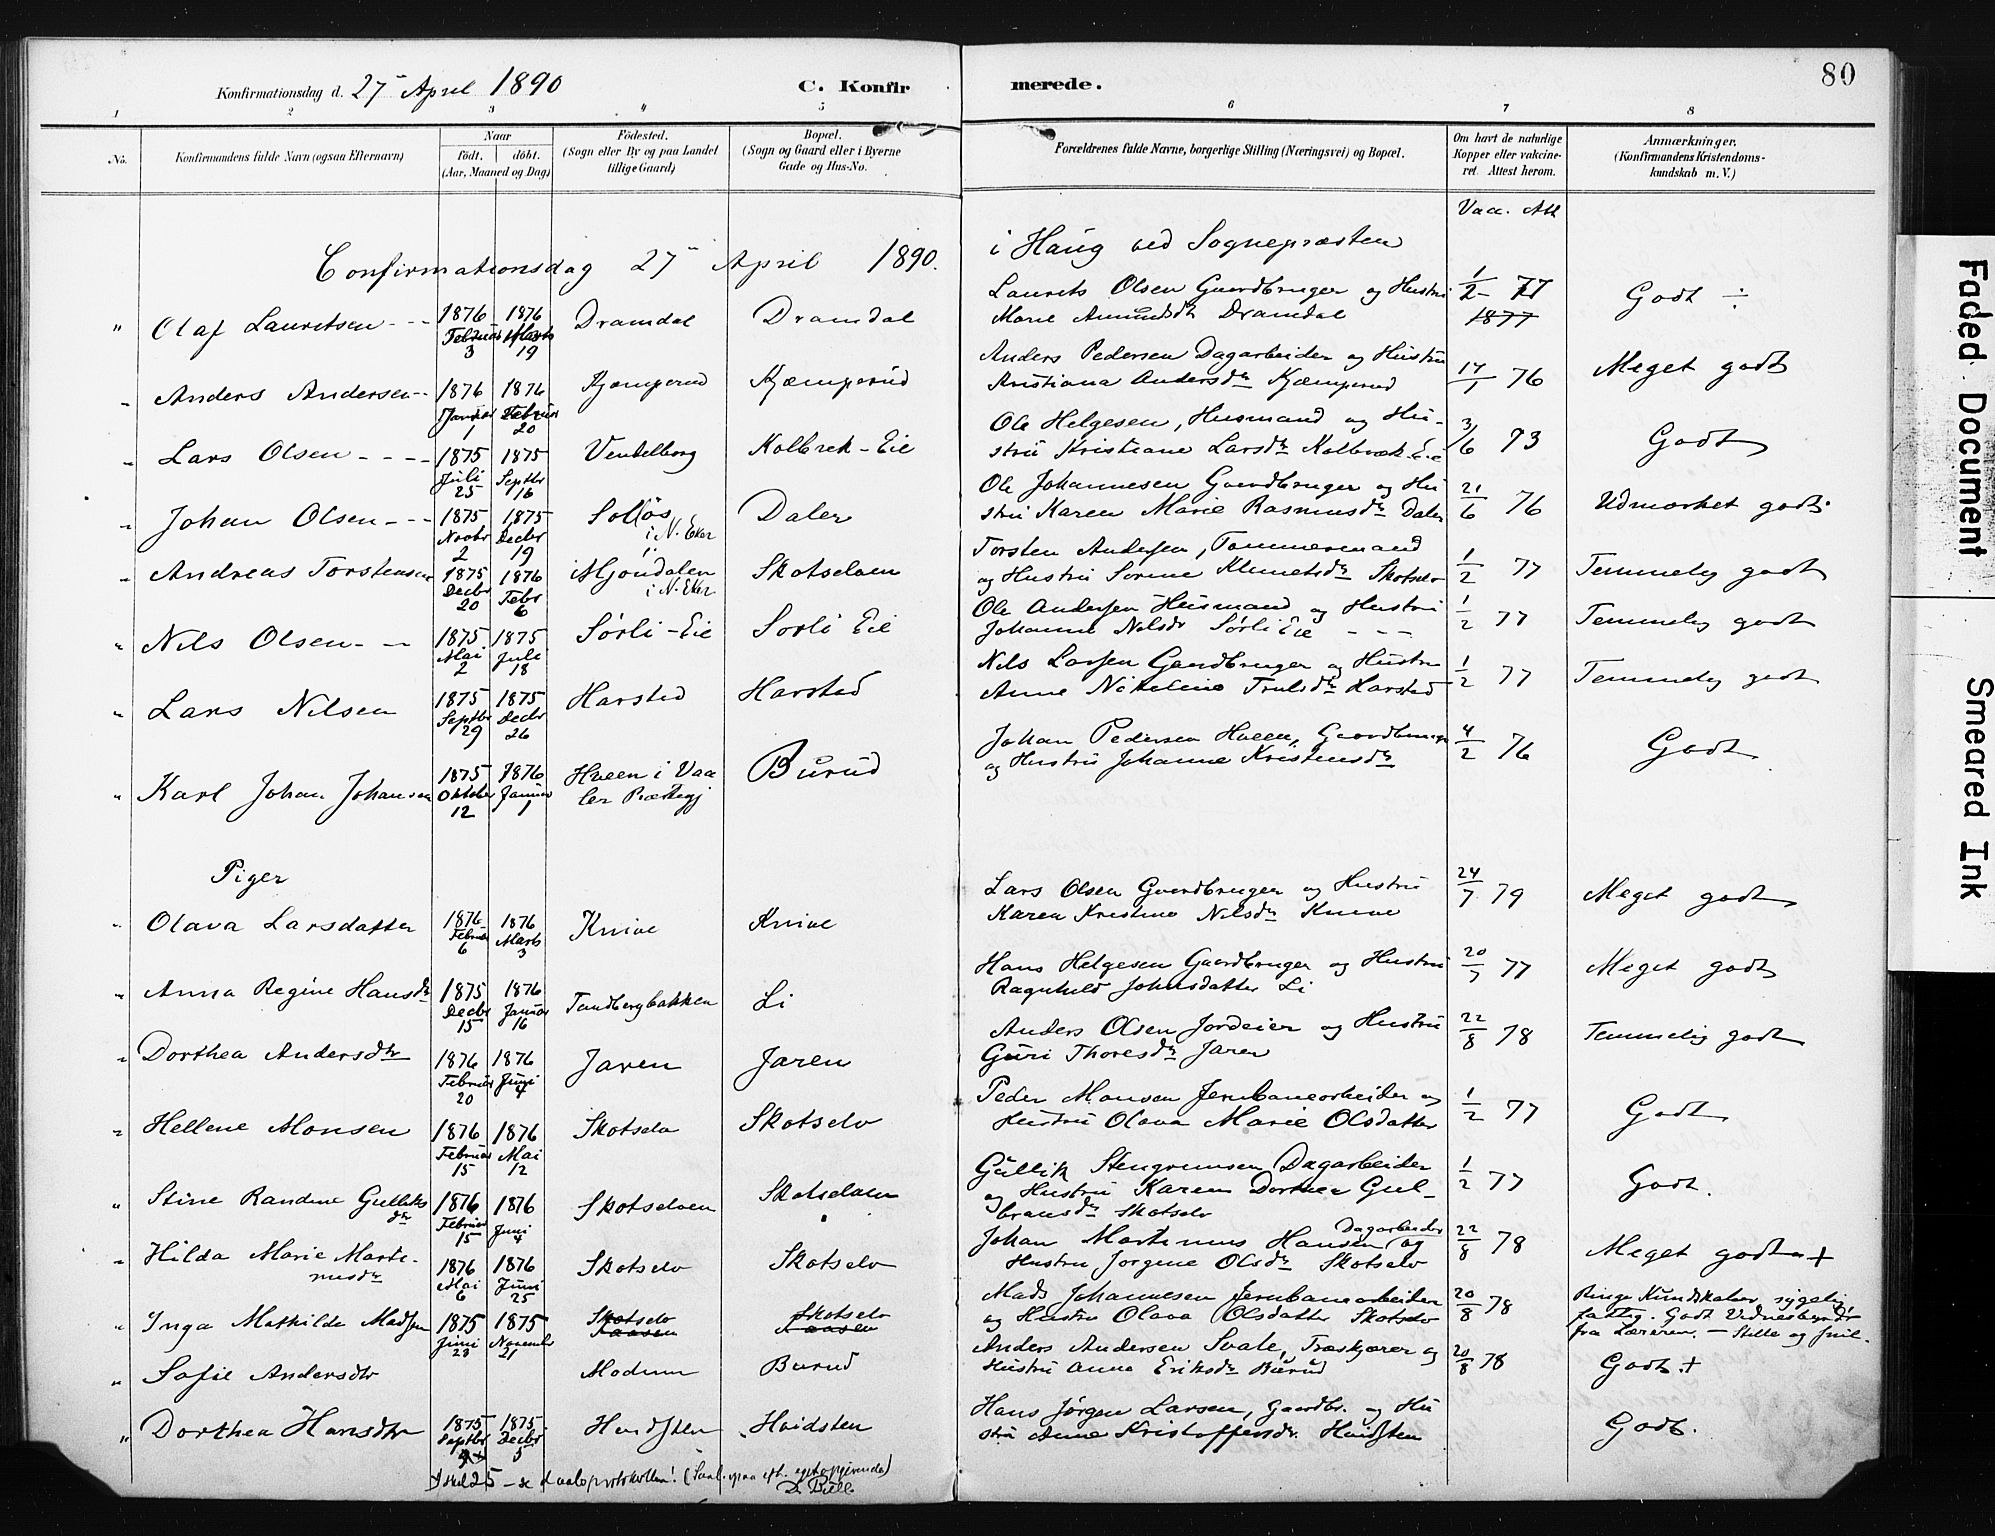 80
Konfirmationsdag d. 27 April 1890
C. Konfirmerede.
1 2 3 4 5 6 7 8
No.
Konfirmandens fulde Navn (ogsaa Efternavn)
Naar
født. døbt.
(Aar, Maaned og Dag)
Fødested.
(Sogn eller By og paa Landet
tillige Gaard)
Bopæl.
(Sogn og Gaard eller i Byerne
Gade og Hus-No.
Forældrenes fulde Navne, borgerlige Stilling (Næringsvei) og Bopæl.
Om havt de naturlige
Kopper eller vakcine-
ret. Attest herom.
Anmærkninger.
(Konfirmandens Kristendoms-
kundskab m. V.)
Vacc. Att
Confirmationsdag 27 April 1890. i Haug ved Sognepræsten
" Olaf Lauritsen - - - 1876 Februar 3 1876 Marts 19 Dramdal Dramdal
Laurits Olsen Gaardbruger og Hustru
Marie Amundsdtr Dramdal
1/2 - 77
1877
Godt ÷
" Anders Andersen - - 1876 Januar 1 1876 Februar 20 Kjæmperud Kjæmperud
Anders Pedersen Dagarbeider og Hustru
Kristiana Andersdtr Kjæmperud
17/1 76
Meget godt
" Lars Olsen - - - - 1875 Juli 25 1875 Septbr 16 Vendelborg Kolbrek - Eie
Ole Helgesen, Husmand og Hu-
stru Kristiane Larsdtr Kolbræk Eie
3/6 73
Godt
" Johan Olsen - - - 1875 Novbr 2 1875 Decbr 19 Solløs i N. Eker Daler
Ole Johannesen Gaardbruger og Hu
stru Karen Marie Rasmusdtr Daler
21/6 76
Udmærket godt
" Andreas Torstensen 1875 Decbr 20 1876 Febr 6 Mjøndalen i N. Eker Skotselven
Torsten Andersen, Tømmermand
og Hustru Sørine Klemetsdtr Skotselv
1/2 77
Temmelig godt
" Nils Olsen - - 1875 Mai 2 1875 Juli 18 Sørli - Eie Sørli Eie
Ole Andersen Husmand og Hustru
Johanne Nilsdtr Sørli Eie - - -
1/2 77
Temmelig godt
" Lars Nilsen 1875 Septbr 29 1875 Decbr 26 Harstad Harstad
Nils Larsen Gaardbruger og Hustru
Anne Nikoline Trulsdtr Harstad
1/2 77
Temmelig godt
" Karl Johan Johansen 1875 Oktober 12 1876 Januar 1 Hveen i Vaa
ler Præstegj Burud
Johan Pedersen Hveen, Gaardbruger
og Hustru Johanne Kristensdtr
4/2 76
Godt
Piger
" Olava Larsdatter 1876 Februar 6 1876 Marts 3 Knive Knive
Lars Olsen Gaardbruger og Hustru
Karen Kristine Nilsdtr Knive
24/7 79
Meget godt
" Anna Regine Hansdtr 1875 Decbr 15 1876 Januar 16 Tandbergbakken Li
Hans Helgesen Gaardbruger og Hustru
Ragnhild Johnsdatter Li
20/7 77
Meget godt
" Dorthea Andersdtr 1876 Februar 20 1876 Juni 4 Jaren Jaren
Anders Olsen Jordeier og Hustru
Guri Thoresdtr Jaren
22/8 78
Temmelig godt
" Hellene Monsen 1876 Februar 15 1876 Mai 12 Skotselv Skotselv
Peder Monsen Jernbanearbeider og
Hustru Olava Marie Olsdatter
1/2 77
Godt
" Stine Randine Gulliks
dtr 1876 Februar 15 1876 Juni 4 Skotselven Skotselven
Gullik Stengrimsen Dagarbeider
og Hustru Karen Dorthea Gul-
bransdtr Skotselv
1/2 77
Godt.
" Hilda Marie Marti-
nusdtr 1876 Mai 6 1876 Juni 25 Skotselv Skotselv
Johan Martinus Hansen Dagarbeider og
Hustru Jørgine Olsdtr Skotselv
22/8 78
Meget godt +
" Inga Mathilde Madsen 1875 Juni 23 1875 Novemb 21 Skotselv Skotselv
Mads Johannesen Jernbanearbeider
og Hustru Olava Olsdatter Skotselv
20/8 78
Ringe Kundskaber, sygelig,
fattig. Godt Vidnesbyrd
fra Læreren. - Stille og snil.
" Sofie Andersdtr Modum Burud
Anders Andersen Svale, Træskjærer og
Hustru Anna Eriksdtr Burud
20/8 78
Godt +
" Dorthea Hansdtr 1875 Septbr 1875 Decbr 5 Hoidsten Hoidsten
Hans Jørgen Larsen, Gaardbr. og Hu
stru Anne Kristoffersdr. Hoidsten
Godt.
25 - se daabsprotokollen!
Faded Document
Smeared Ink